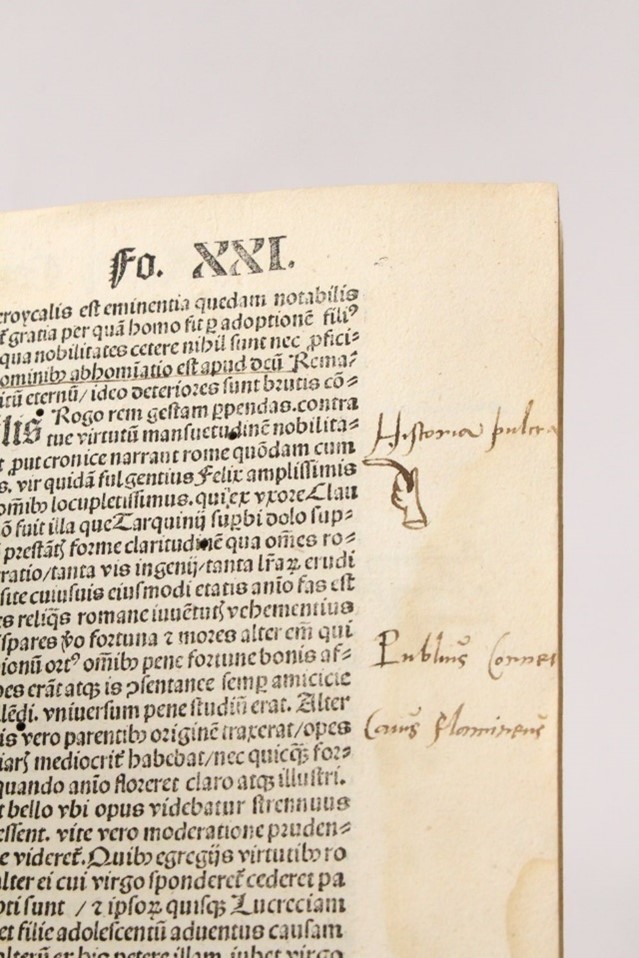 Fo. XXI.
eroycalis est eminentia quedam notabilis
gratia per quā hōmo fit ꝑ adoptionē filiꝰ
qua nobilitates cetere nihil sunt nec ꝓfici⸗
ominibꝫ abhomiatio est apud deū Rema⸗
itū eternū/ ideo deteriores sunt brutis cō⸗
lis Rogo rem gestam ꝑpendas.contra
tue virtutū mansuetudinē nobilita⸗
put cronice narrant rome quōdam cum
s. vir quidā fulgentius Felix amplissimis
om̄ibꝫ locupletissimus. qui ex vxore Clau
ō fuit illa que Tarquinij suꝑbi dolo sup⸗
prestātꝭ forme claritudinē qua om̄es ro⸗
ratio/tanta vis ingenij/tanta lr̄aꝝ erudi
site cuiusuis eiusmodi etatis anīo fas est
s reliq̄s romane iuuētutꝭ vehementius
spares ꝟo fortuna ⁊ mores alter em̄ qui
ionū ortꝰ om̄ibꝫ pene fortune bonis af⸗
es erāt atqꝫ is ↄsentance semꝑ amicicie
lēdi. vniuersum pene studiū erat. Alter
is vero parentibꝫ originē traxerat/opes
iarꝭ mediocrit̄ habebat/nec quicq̄ꝫ for⸗
quando anīo floreret claro atqꝫ illustri.
t bello vbi opus videbatur strennuus
essent. vite vero moderatione pruden⸗
e videret̄. Quibꝫ egregijs virtutibꝫ ro
alter ei cui virgo sponderet̄ cederet pa
pti sunt / ⁊ ipsoꝝ quisqꝫ Lucreciam
et filie adolescentū aduentus causam
alterū ex his petere illam. iubet virgo
Historia pulcra
Publiꝰ Cornel
Caiꝰ flaminenꝰ